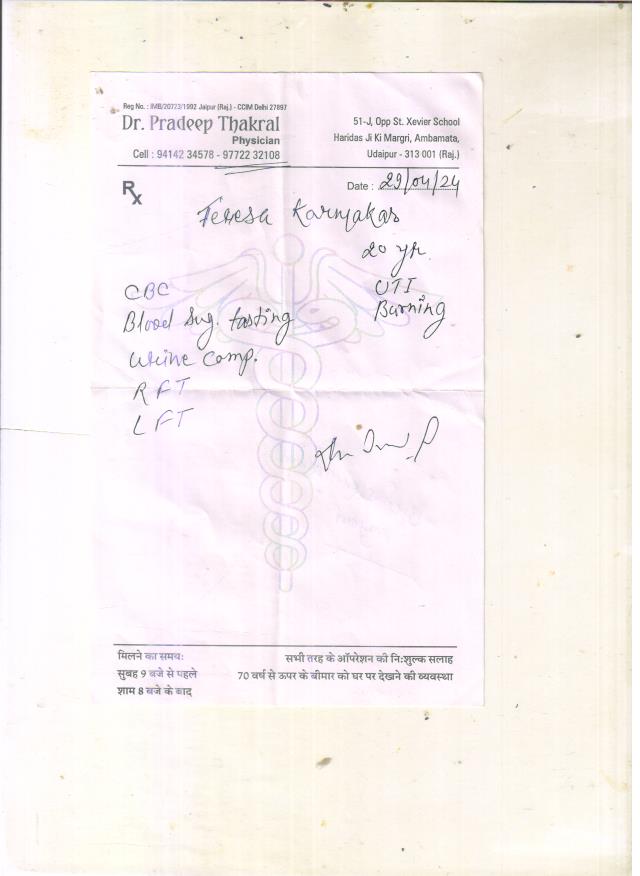 Reg No. : IMB/20723/1992 Jaipur (Raj.) - CCIM Delhi 27897
Dr. Pradeep Thakral
Physician
Cell : 94142 34578 - 97722 32108
51-J, Opp St. Xevier School
Haridas Ji Ki Margri, Ambamata,
Udaipur - 313 001 (Raj.)
Rx
Date : 29/04/24
Teresa Karmakar
20 yr.
CBC
UTI
Blood Sug. fasting
Burning
Urine Comp.
RFT
LFT
मिलने का समय:
सुबह 9 बजे से पहले
शाम 8 बजे के बाद
सभी तरह के ऑपरेशन की नि:शुल्क सलाह
70 वर्ष से ऊपर के बीमार को घर पर देखने की व्यवस्था